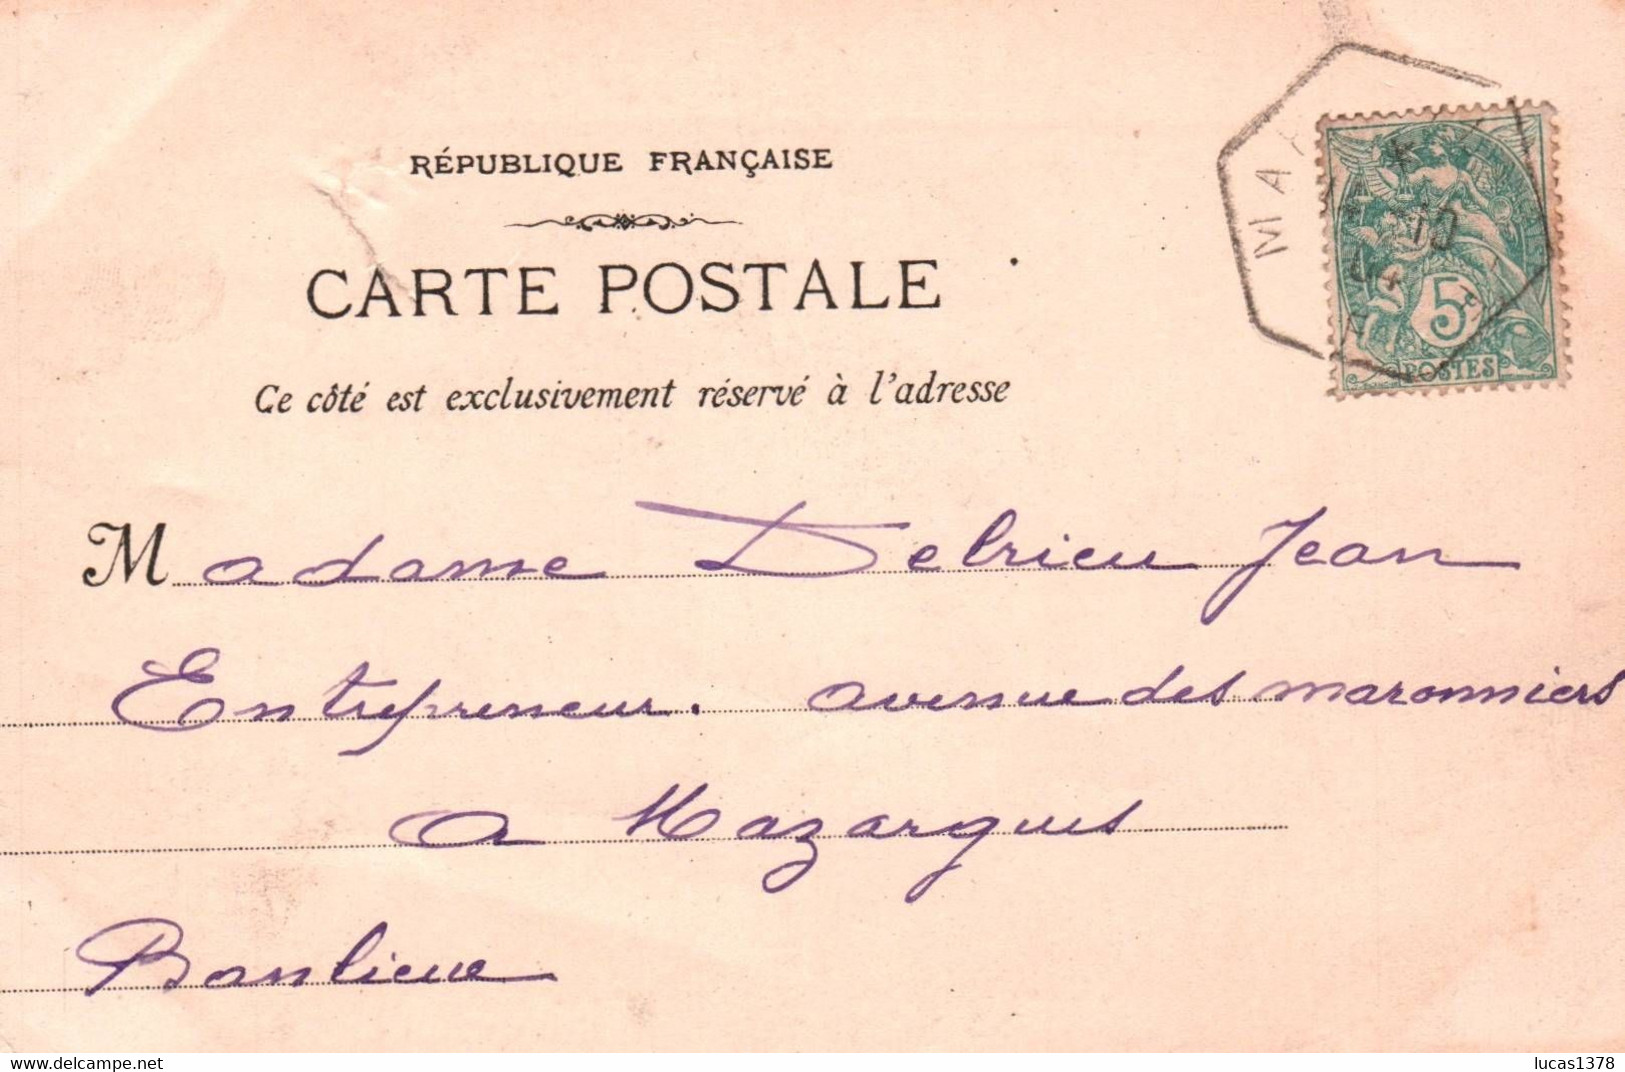 RÉPUBLIQUE FRANÇAISE
CARTE POSTALE
Ce côté est exclusivement réservé à l'adresse
Madame Delrieu Jean
Entrepreneur. avenue des maronniers
a Mazargues
Banlieue
5c
POSTES
delcampe.net
lucas1378